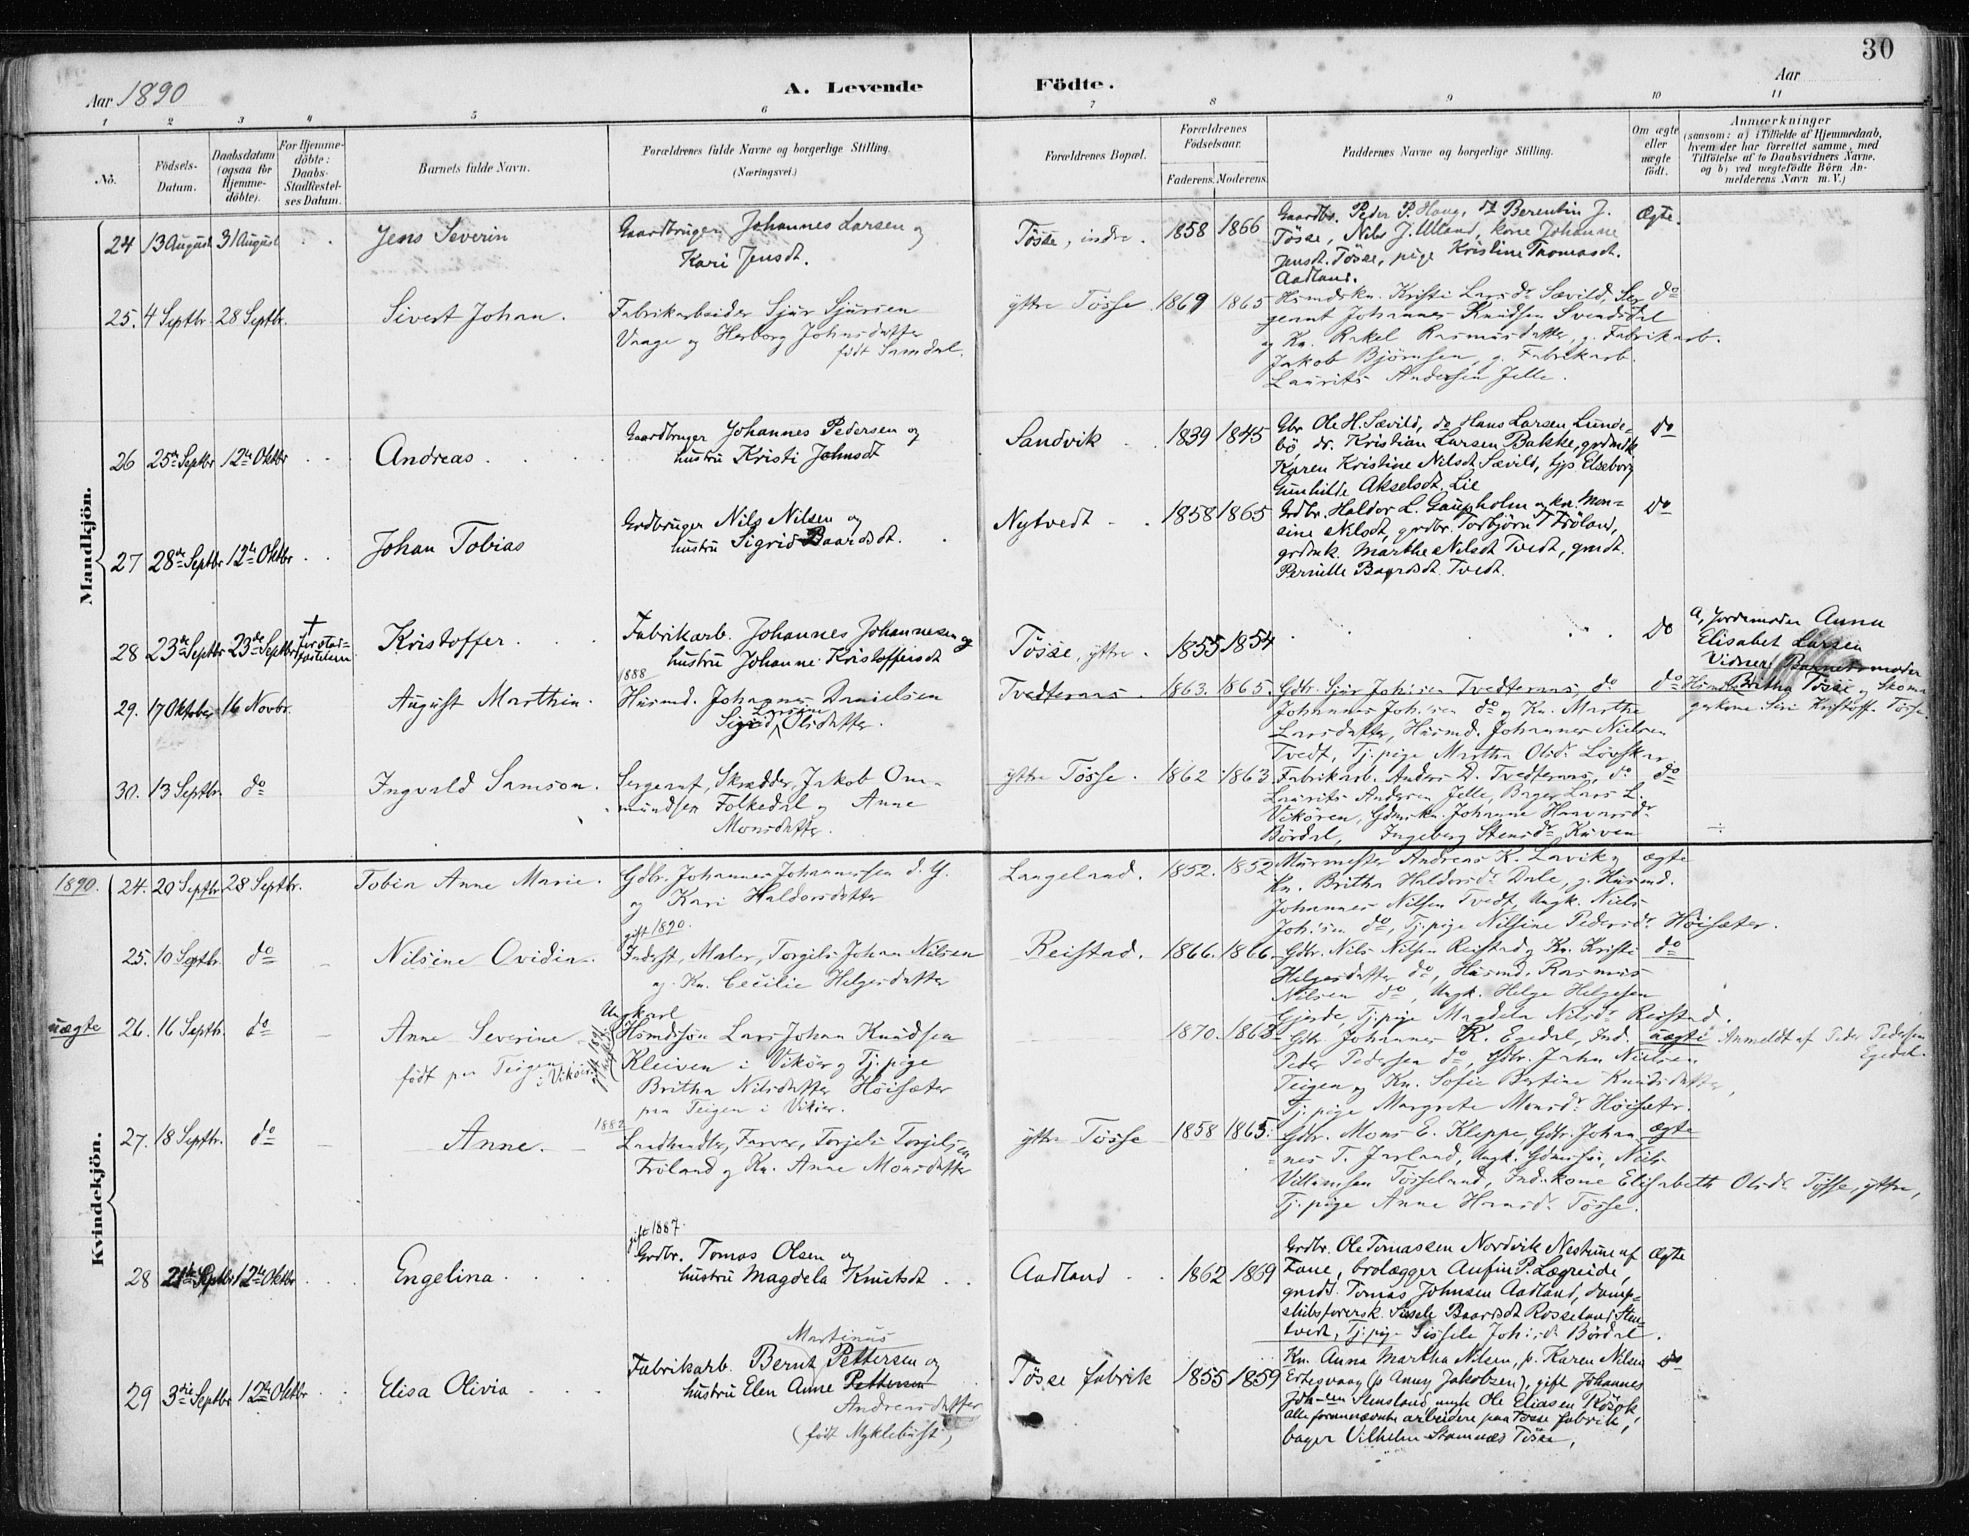 30
Aar 1890
A. Levende Födte.
Aar
1 2 3 4 5 6 7 8 9 10 11
No.
Födsels-Datum.
Daabsdatum (ogsaa for Hjemme-döbte).
For Hjemme-döbte: Daabs-Stadfæstel-ses Datum.
Barnets fulde Navn.
Forældrenes fulde Navne og borgerlige Stilling.
(Næringsvei.)
Forældrenes Bopæl.
Forældrenes Födselsaar.
Faderens. Moderens.
Faddernes Navne og borgerlige Stilling.
Om ægte eller uægte födt.
Anmærkninger
(saasom: a) i Tilfælde af Hjemmedaab, hvem der har forrettet samme, med Tilföielse af to Daabsvidners Navne, og b) ved uægtefödte Börn An-melderens Navn m. V.)
Mandkjön.
24 13 August 31 August Jens Severin
Gaardbruger Johannes Larsen og
Kari Jensdt.
Tösse, indre. 1858 1866
Gaardbr. Peder P. Haug, dt Berentin J.
Tösse, Nils J. Utland, kone Johanne
Jensdt. Tösse, pige Kristine Thomasdt.
Aadland.
Ægte.
25. 4 Septbr. 28 Septbr. Sivert Johan.
Fabrikarbeider Sjur Sjursen
Vaage og Herborg Johnsdatter
födt Samdal.
yttre Tösse 1869 1865
Husmdskn. Kristi Larsdr Sævild, Ser-
geant Johannes Knudsen Svendsdal
og Kn. Rakel Rasmusdatter, g. Fabrikarb.
Jakob Björnsen, g. Fabrikarb.
Laurits Andersen Jelle.
do
26 25de Septbr 12te Oktbr Andreas
Gaardbruger Johannes Pedersen og
hustru Kristi Johnsdt
Sandvik 1839 1845
Gbr Ole H. Sævild, do Hans Larsen Lunde-
bö, do. Kristian Larsen Bakke, grdmdk
Karen Kristine Nilsdt Sævild, tjp Elseborg
Gunhilde Akselsdt. Lie
do
27 28de Septbr 12te Oktbr Johan Tobias
Grdbruger Nils Nilsen og
hustru Sigrid Baardsdt.
Nytvedt 1858 1865
Grdbr. Haldor L. Gaupholm og kn. Mon-
sine Nilsdt, grdbr. Torbjörn T Fröland,
grdmk. Marthe Nilsdt Tvedt, gmdt.
Pernille Baardsdt. Tvedt.
do
28 23de Septbr 23de Septbr Kristoffer
Fabrikarb. Johannes Johannesen og
hustru Johanne Kristoffersdt
Tösse, yttre. 1855 1854
do
a, Jordemoder Anna
Elisabet Larsen
Vidner: Barnets moder
Britha Tösse og Skoma
gerkone Siri Kristoff. Tösse.
29. 17 Oktober 16 Novbr. August Marthin.
1888
Husmd. Johannes Danielsen
Larsine
Sigrid Olsdatter.
Tvedternæs 1863. 1865.
Gdbr. Sjur Johnsen Tvedternæs, do
Johannes Johnsen do og Kn. Marthe
Larsdatter, Husmd. Johannes Nielsen
Tvedt, Tj.pige Martha Olsdr
do
30. 13 Septbr. do Ingvald Samson.
Sergeant, Skrædder, Jakob Om-
mundsen Folkedal og Anne
Monsdatter.
yttre Tösse. 1862 1863
Fabrikarb. Anders D. Tvedternæs, do
Laurits Andersen Jelle, Bager Lars L.
Vikören, Gdmskn. Johanne Haavardsdr
Bördal, Ingeborg Stensdr Kuven
do
÷
Kvindekjön.
1890. 24. 20 Septbr 28 Septbr. Tobia Anne Marie.
Gdbr. Johannes Johannessen d. Y.
og Kari Haldorsdatter
Langeland. 1852. 1852
Murmester Andreas K. Lavik og
Kn. Britha Haldorsdr Dale, g. Husmd.
Johannes Nilsen Tvedt, Ungk. Niels
Johnsen do, Tj.pige Nilsine Pedersdr Höisæter.
ægte
25. 10 Septbr. do Nilsine Ovidia.
gift 1890.
Inderst, Maler, Torgils Johan Nilsen
og Kn. Cecilie Helgesdatter
Reistad. 1866. 1866.
Gdbr. Nils Nilsen Reistad og Kn. Kristi
Helgesdatter do, Husmd. Rasmus
Nilsen do, Ungk. Helge Helgesen
Gjerde, Tj.pige Magdela Nilsdr Reistad.
do
uægte 26. 16 Septbr. do Anne Severine
födt paa Teigen i Vikör
Ungkarl
Husmdssön Lars Johan Knudsen
Kleiven i Vikör og Tj.pige
Britha Nilsdatter Höisæter
paa Teigen i Vikör.
1870. 1868
Gdbr. Johannes K. Egedal, Ind.
Peder Pedersen do, Gdbr. John Nielsen
Teigen og Kn. Sofie Bertine Knudsdatter,
Tj.pige Margrete Monsdr Höisætr.
uægte
Anmeldt af Peder Pedersen
Egedal.
27. 18 Septbr. do Anne.
1882
Landhandler, Farver, Torjels Torjelsen
Fröland og Kn. Anne Monsdatter
yttre Tösse 1858 1865.
Gdbr. Mons E. Kleppe, Gdbr. Johan-
nes T. Jarland, Ungk. Gdmssön, Niels
Villumsen Tösseland, Ind. kone Elisabeth Olsdr Tösse, yttre,
Tj.pige Anne Hansdr Tösse.
ægte
28 21de Septbr 12te Oktbr Engelina
gift 1887.
Grdbr. Tomas Olsen og
hustru Magdela Knutsdt
Aadland 1862 1869
Grdbr. Ole Tomassen Nordvik Nestune af
Fane, brolægger Anfin P. Lægreide,
gmdS. Tomas Johnsen Aadland, damp-
skibsförersk. Sissele Baardsdt Rosseland Sten-
tvedt, Tj.pige Sissele Johnsdr Bördal.
Ægte
29 3die Septbr 12te Oktbr Elisa Olivia
Martinus
Fabrikarb. Bernt Pettersen og
hustru Elen Anne Pettersen
Andreasdatter
(födt Myklebust)
Tösse fabrik 1855 1859
Kn. Anna Martha Nilsen, p. Karen Nilsen
Ertesvaag (p Anny Jakobsen), gift Johannes
Joh-sen Stensland, ungk Ole Eliasen Rösok,
alle forannævnte arbeidere paa Tösse fabrik,
bager Vilhelm Stamnæs Tösse,
do